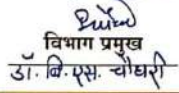 विभाग प्रमुख
डॉ. बि.एस. चौधरी